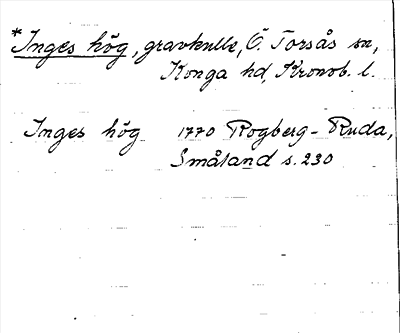 *Inges hög, gravkulle, Ö. Torsås sn,
Konga hd, Kronob. l.
Inges hög 1770 Rogberg-Ruda,
Småland s. 230